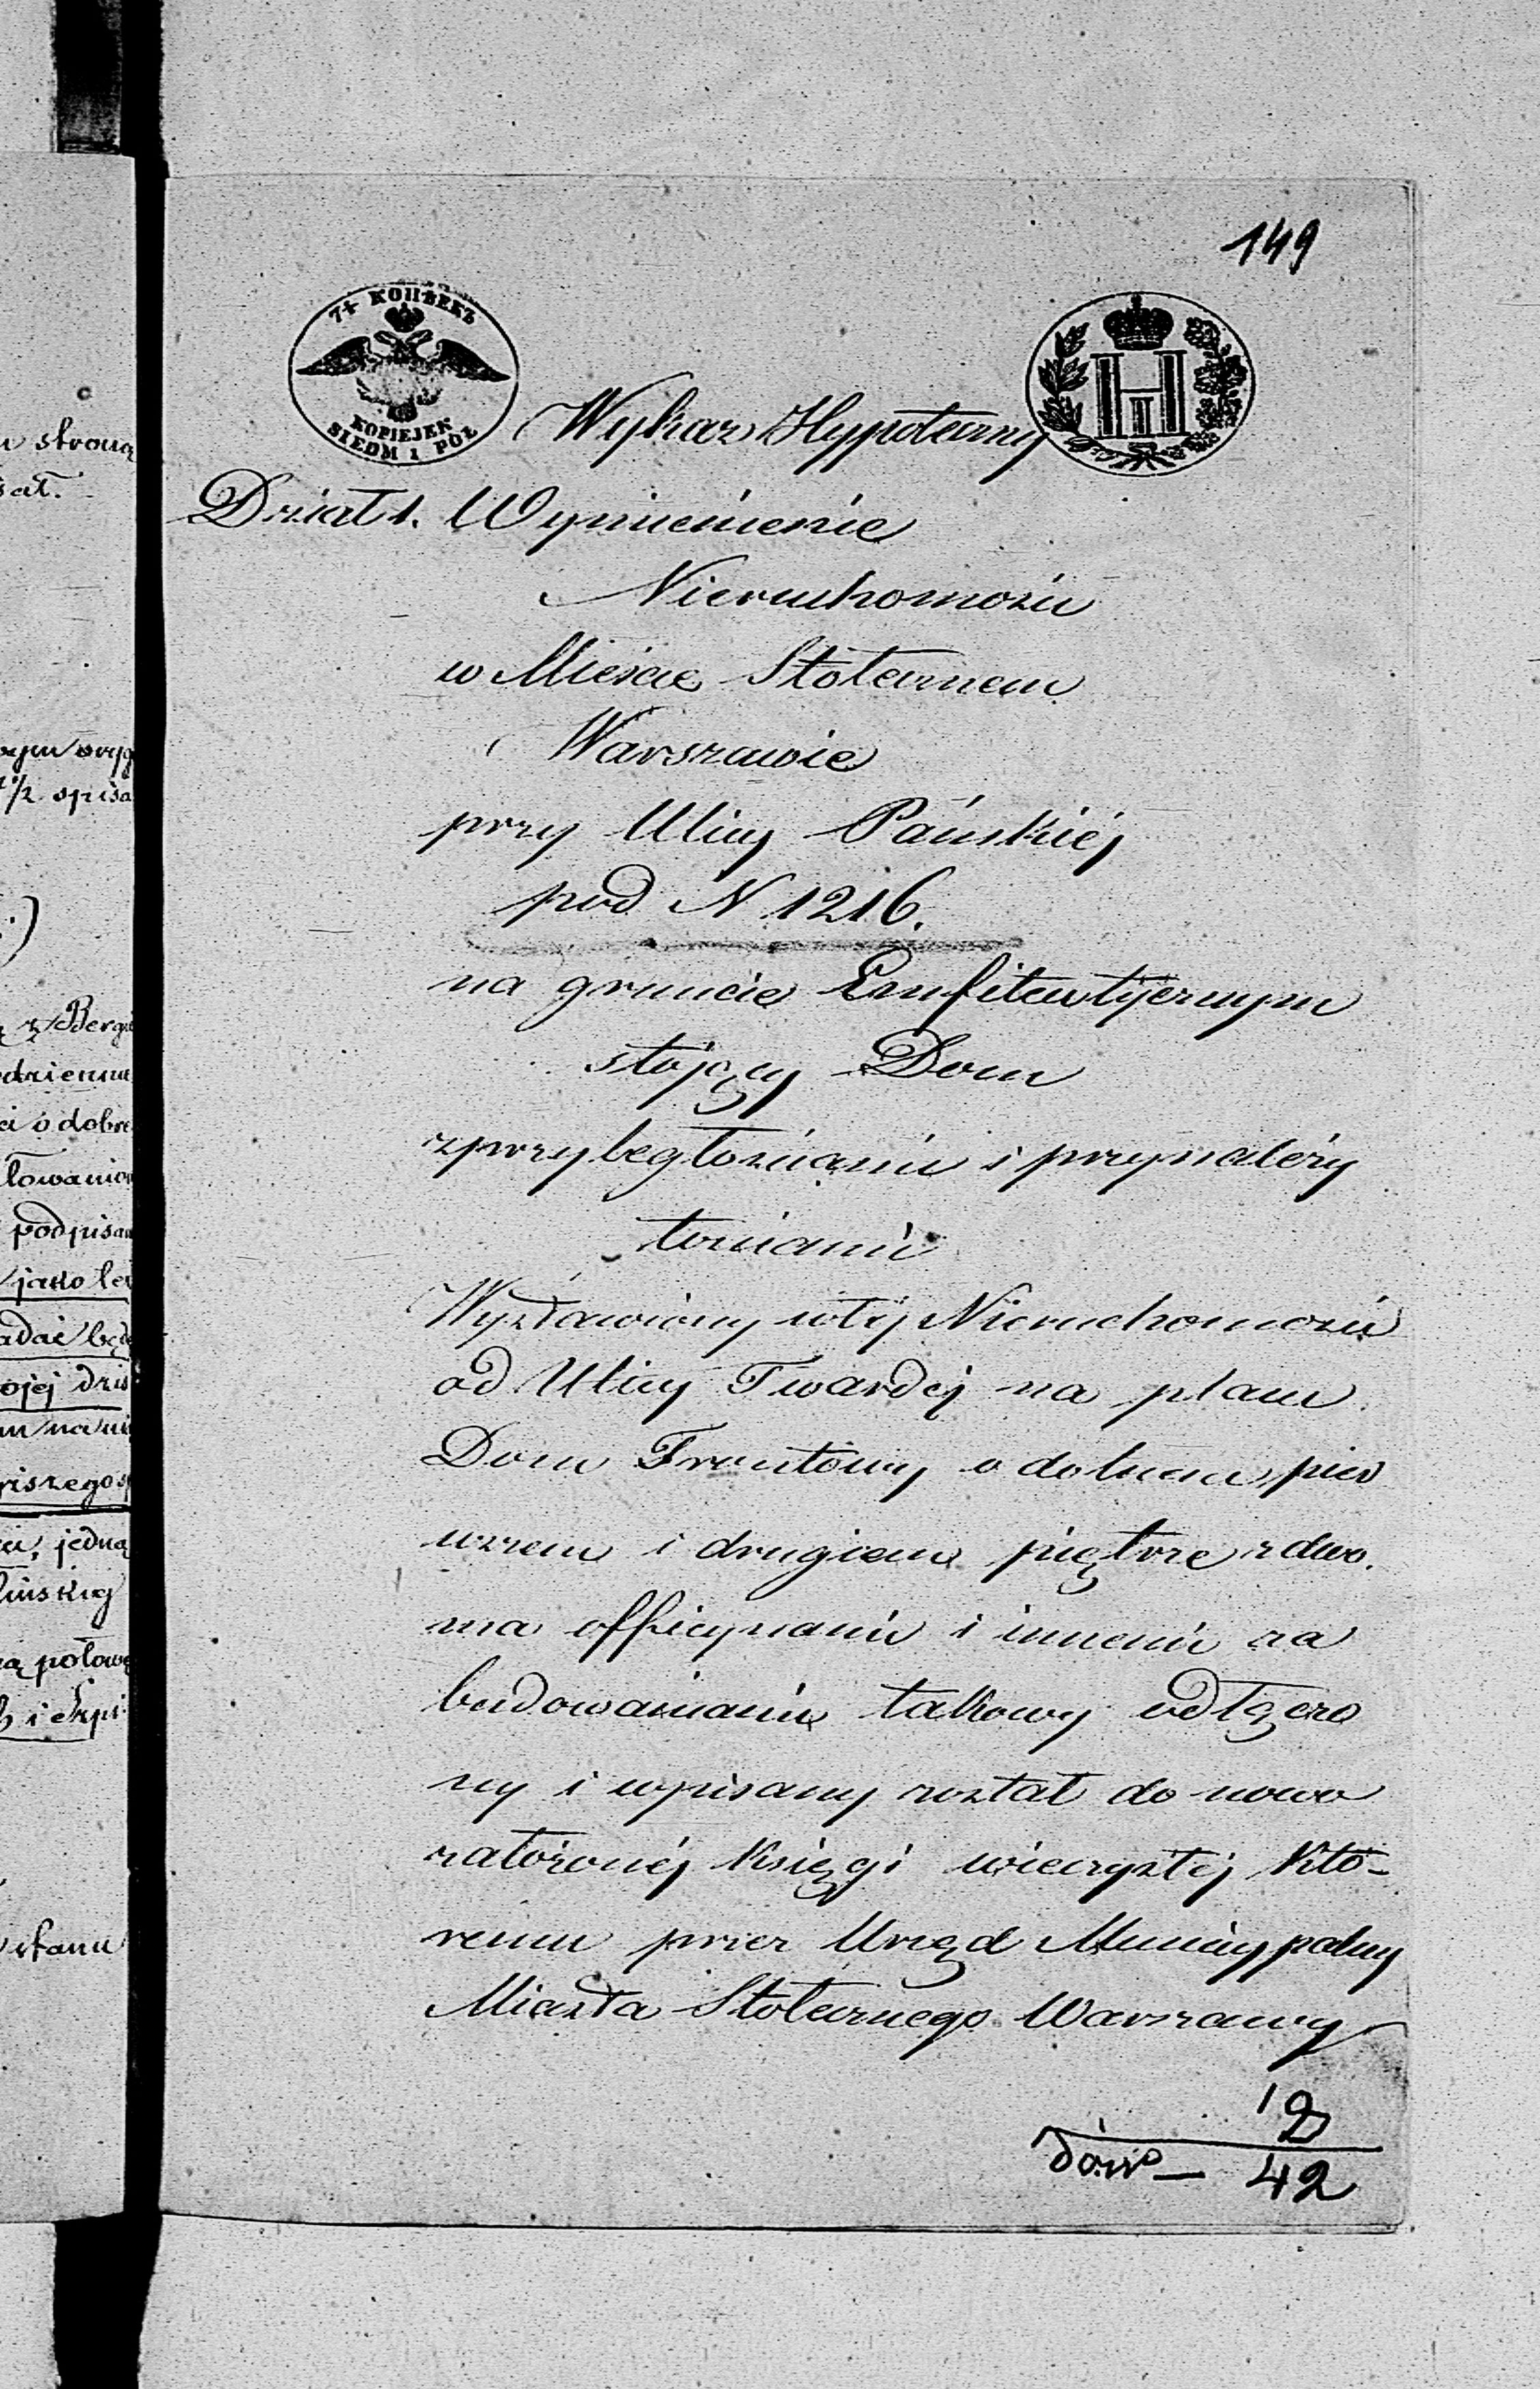 149
7½ КОПѢЕКЪ
KOPIEJEK
SIEDM I PÓŁ
Wykaz Hypoteczny
Dział 1. Wymienienie
Nieruchomości
w Mieście Stołecznem
Warszawie
przy Ulicy Pańskiéj
pod N 1216.
na gruncie Emfiteutycznym
stojący Dom
z przybegłościami i przynależy
tościami
Wystawiony w téj Nieruchomości
od Ulicy Twardéj na placu
Dom Frontowy o dolnem, pier
wszem i drugiem piętrze z dwo.
ma officynami i innemi za
budowaniami takowy odłączo
ny i wpisany został do nowo
założonéj Księgi wieczystéj Któ-
remu przez Urząd Municypalny
Miasta Stołecznego Warszawy
12
dow— 42
u stroną
sał.
1/2 spisa
z Berg
ci o dobre
podpisan
jako le
adać będ
ojej dzis
jedną
ą połowę